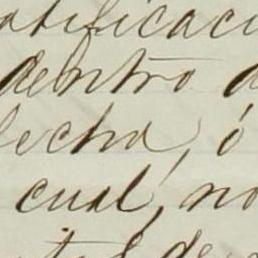 atificaci
dentro d
fecha, ó
cual, no